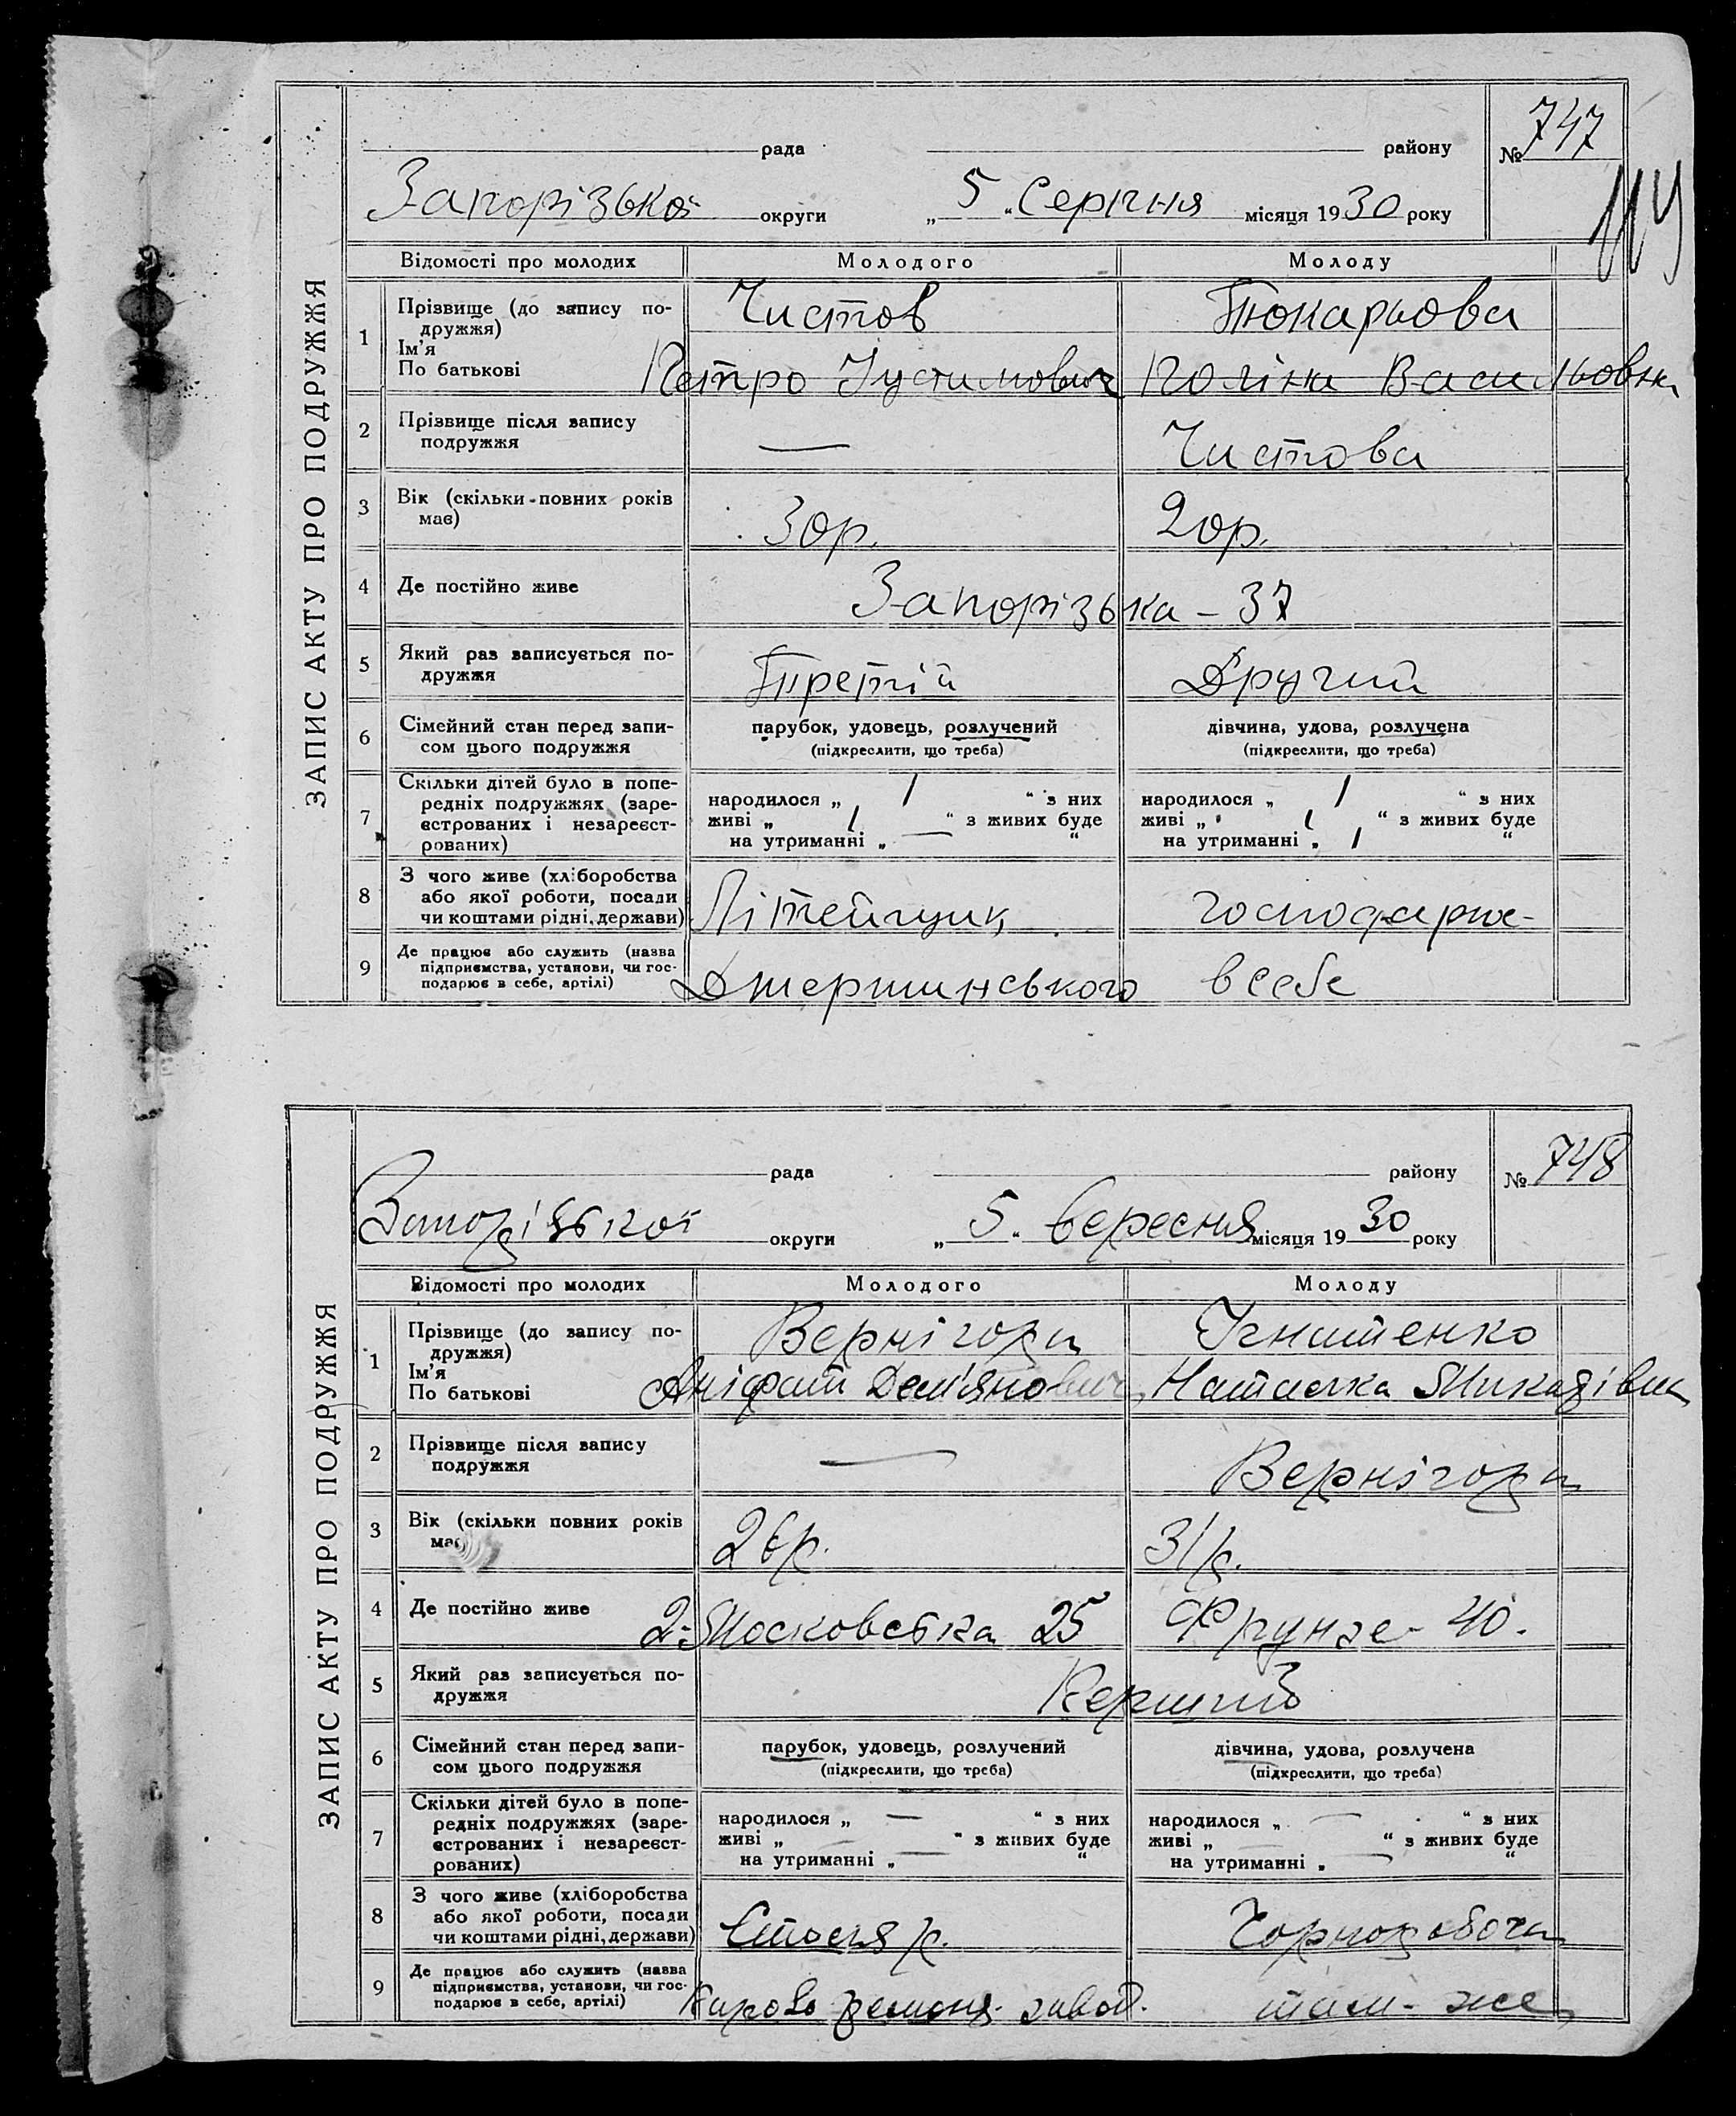 ЗАПИС АКТУ ПРО ПОДРУЖЖЯ
рада району № 747
114
Запорізької округи „5“ Серпня місяця 1930 року
Відомості про молодих Молодого Молоду
1 Прізвище (до запису по- Чистов Токарьова
дружжя)
Ім'я
По батькові Петро Іустимович Поліна Васильовна
2 Прізвище після запису
подружжя — Чистова
3 Вік (скільки повних років
має) 30р. 20р.
4 Де постійно живе Запорізька – 37
5 Який раз записується по-
дружжя Третій Другий
6 Сімейний стан перед запи- парубок, удовець, розлучений дівчина, удова, розлучена
сом цього подружжя (підкреслити, що треба) (підкреслити, що треба)
7 Скільки дітей було в попе-
редніх подружжях (заре- народилося „ 1 “ з них народилося „ 1 “ з них
єстрованих і незареєст- живі „ 1 “ з живих буде живі „ 1 “ з живих буде
рованих) на утриманні „ — “ на утриманні „ 1 “
8 З чого живе (хліборобства
або якої роботи, посади
чи коштами рідні, держави) Літейщик господарює
9 Де працює або служить (назва
підприємства, установи, чи гос-
подарює в себе, артілі) Джержинського в себе
ЗАПИС АКТУ ПРО ПОДРУЖЖЯ
рада району № 748
Запорізької округи „5“ вересня місяця 1930 року
Відомості про молодих Молодого Молоду
1 Прізвище (до запису по- Вернігора Ігнатенко
дружжя)
Ім'я
По батькові Дем'янович Наталка
2 Прізвище після запису
подружжя — Вернігора
3 Вік (скільки повних років
має) 26р. 31р.
4 Де постійно живе 2-Московська 25 Фрунзе - 40.
5 Який раз записується по-
дружжя Перший
6 Сімейний стан перед запи- парубок, удовець, розлучений дівчина, удова, розлучена
сом цього подружжя (підкреслити, що треба) (підкреслити, що треба)
7 Скільки дітей було в попе-
редніх подружжях (заре- народилося „ — “ з них народилося „ — “ з них
єстрованих і незареєст- живі „ — “ з живих буде живі „ — “ з живих буде
рованих) на утриманні „ — “ на утриманні „ — “
8 З чого живе (хліборобства
або якої роботи, посади
чи коштами рідні, держави) Столяр. Чорноробоча
9 Де працює або служить (назва
підприємства, установи, чи гос-
подарює в себе, артілі) ремонт. завод. там-же